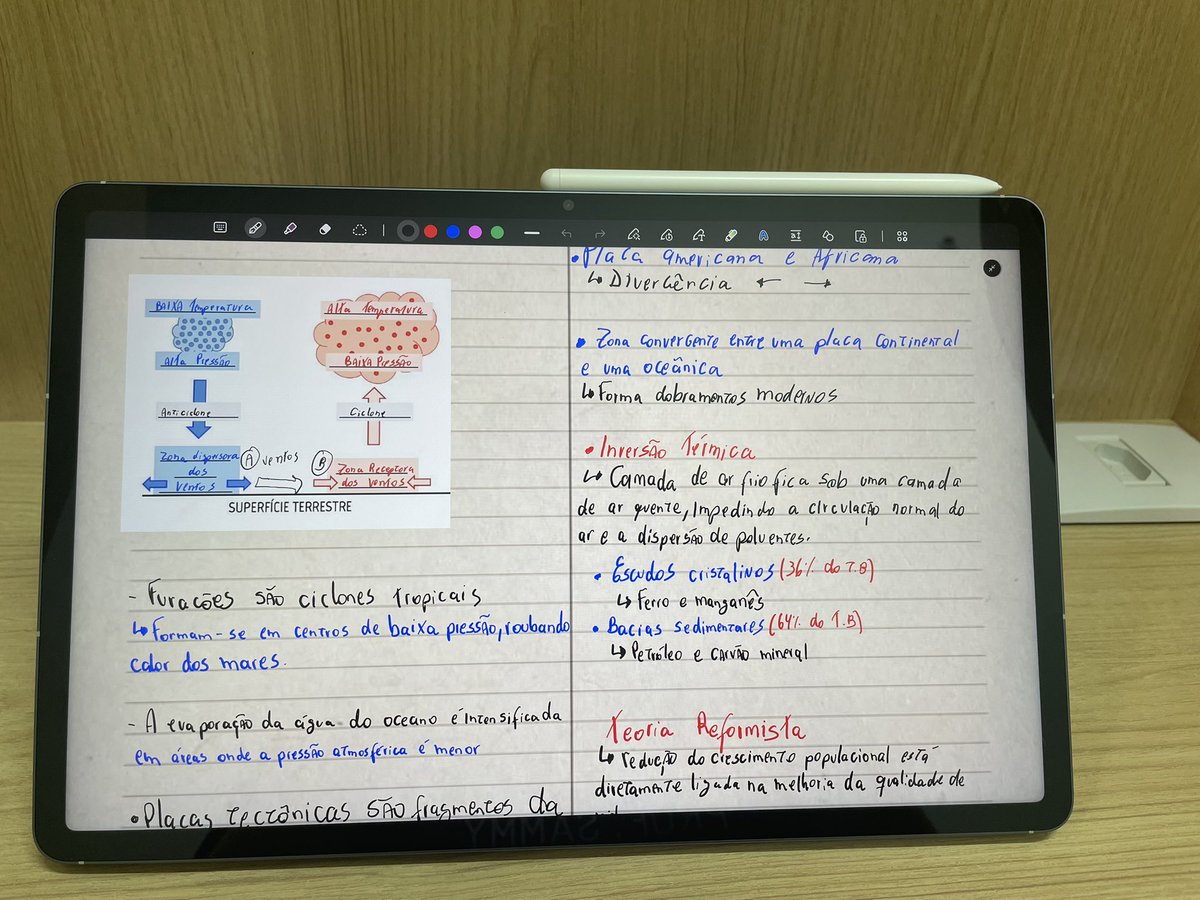 BAIXA Temperatura
Alta Pressão
Anticiclone
Zona dispersora
dos
ventos
A
ventos
Alta Temperatura
BAIXA Pressão
Ciclone
B
Zona Receptora
dos ventos
SUPERFÍCIE TERRESTRE
- Furacões são ciclones tropicais
↳ Formam-se em centros de baixa pressão, roubando
calor dos mares.
- A evaporação da água do oceano é intensificada
em áreas onde a pressão atmosférica é menor
• Placas tectônicas são fragmentos da
• Placa americana e Africana
↳ Divergência ← →
• Zona convergente entre uma placa continental
e uma oceânica
↳ Forma dobramentos modernos
• Inversão Térmica
↳ Camada de ar frio fica sob uma camada
de ar quente, impedindo a circulação normal do
ar e a dispersão de poluentes.
• Escudos cristalinos (36% do T.B)
↳ Ferro e manganês
• Bacias sedimentares (64% do T.B)
↳ Petróleo e carvão mineral
Teoria Reformista
↳ redução do crescimento populacional está
diretamente ligada na melhoria da qualidade de